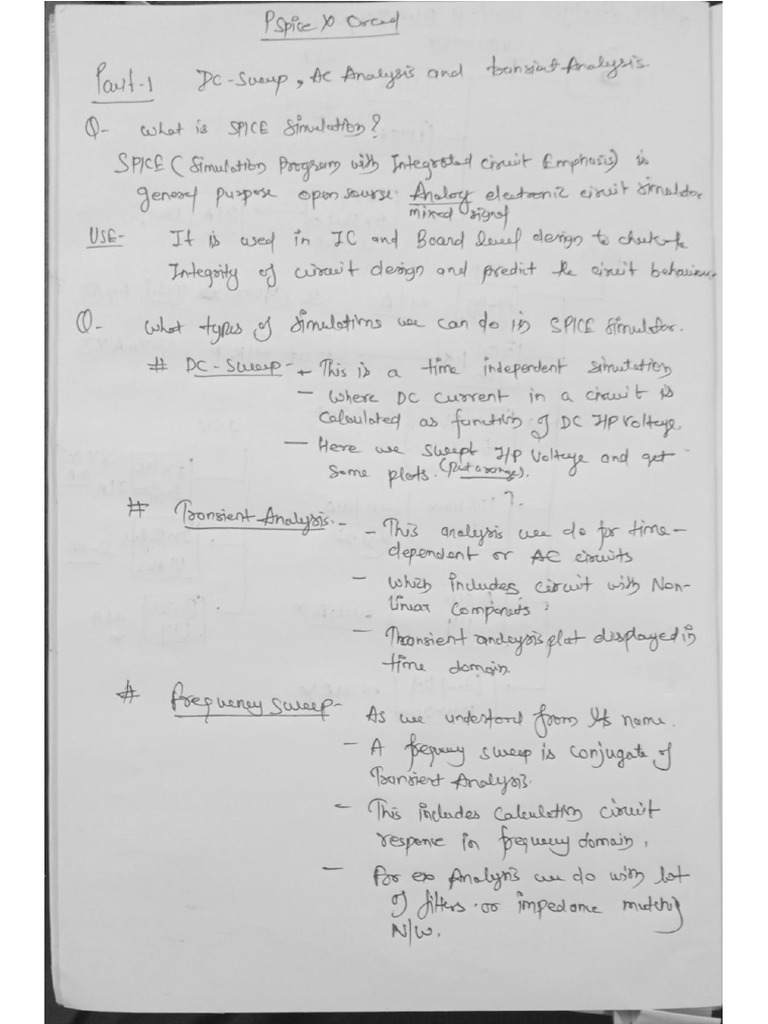 PSpice X Orcad
Part-1 DC-Sweep, AC Analysis and transient Analysis.
Q- What is SPICE Simulation?
SPICE (Simulation Program with Integrated circuit Emphasis) is
general purpose open sourse Analog electronic circuit simulator
mixed signal
USE- It is used in IC and Board level design to check the
Integrity of circuit design and predict the circuit behaviour.
Q- What types of simulations we can do in SPICE Simulator.
# DC-Sweep - This is a time independent simulation
- Where DC current in a circuit is
Calculated as function of DC I/P Voltage.
- Here we swept I/P Voltage and get
Some plots. (Put a range).
?.
# Transient Analysis. - - This analysis we do for time-
dependent or AC circuits
- Which includes circuit with Non-
linear Components.
- Transient analysis plot displayed in
time domain.
# Frequency sweep- As we understand from its name.
- A frequency sweep is conjugate of
Transient Analysis.
- This includes calculation circuit
response in frequency domain.
- For ex Analysis we do with lot
of filters or impedance matching
N/W.